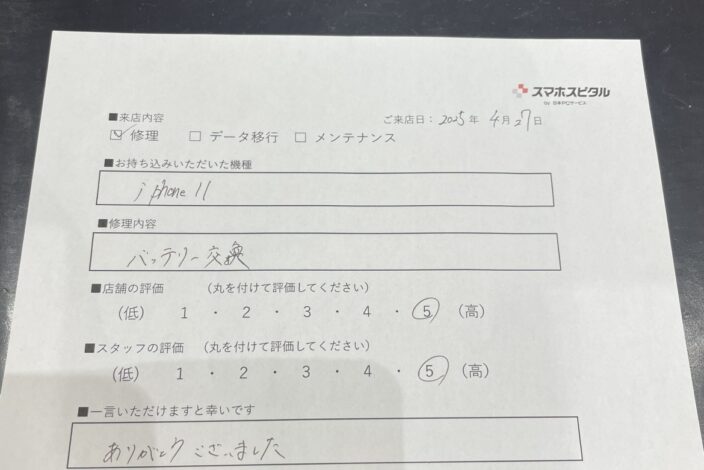 スマホスピタル
by 日本PCサービス
■来店内容
ご来店日：2025年 4月27日
☑修理 □ データ移行 □ メンテナンス
■お持ち込みいただいた機種
iphone 11
■修理内容
バッテリー交換
■店舗の評価 （丸を付けて評価してください）
（低） 1 ・ 2 ・ 3 ・ 4 ・ 5 （高）
■スタッフの評価 （丸を付けて評価してください）
（低） 1 ・ 2 ・ 3 ・ 4 ・ 5 （高）
■一言いただけますと幸いです
ありがとうございました